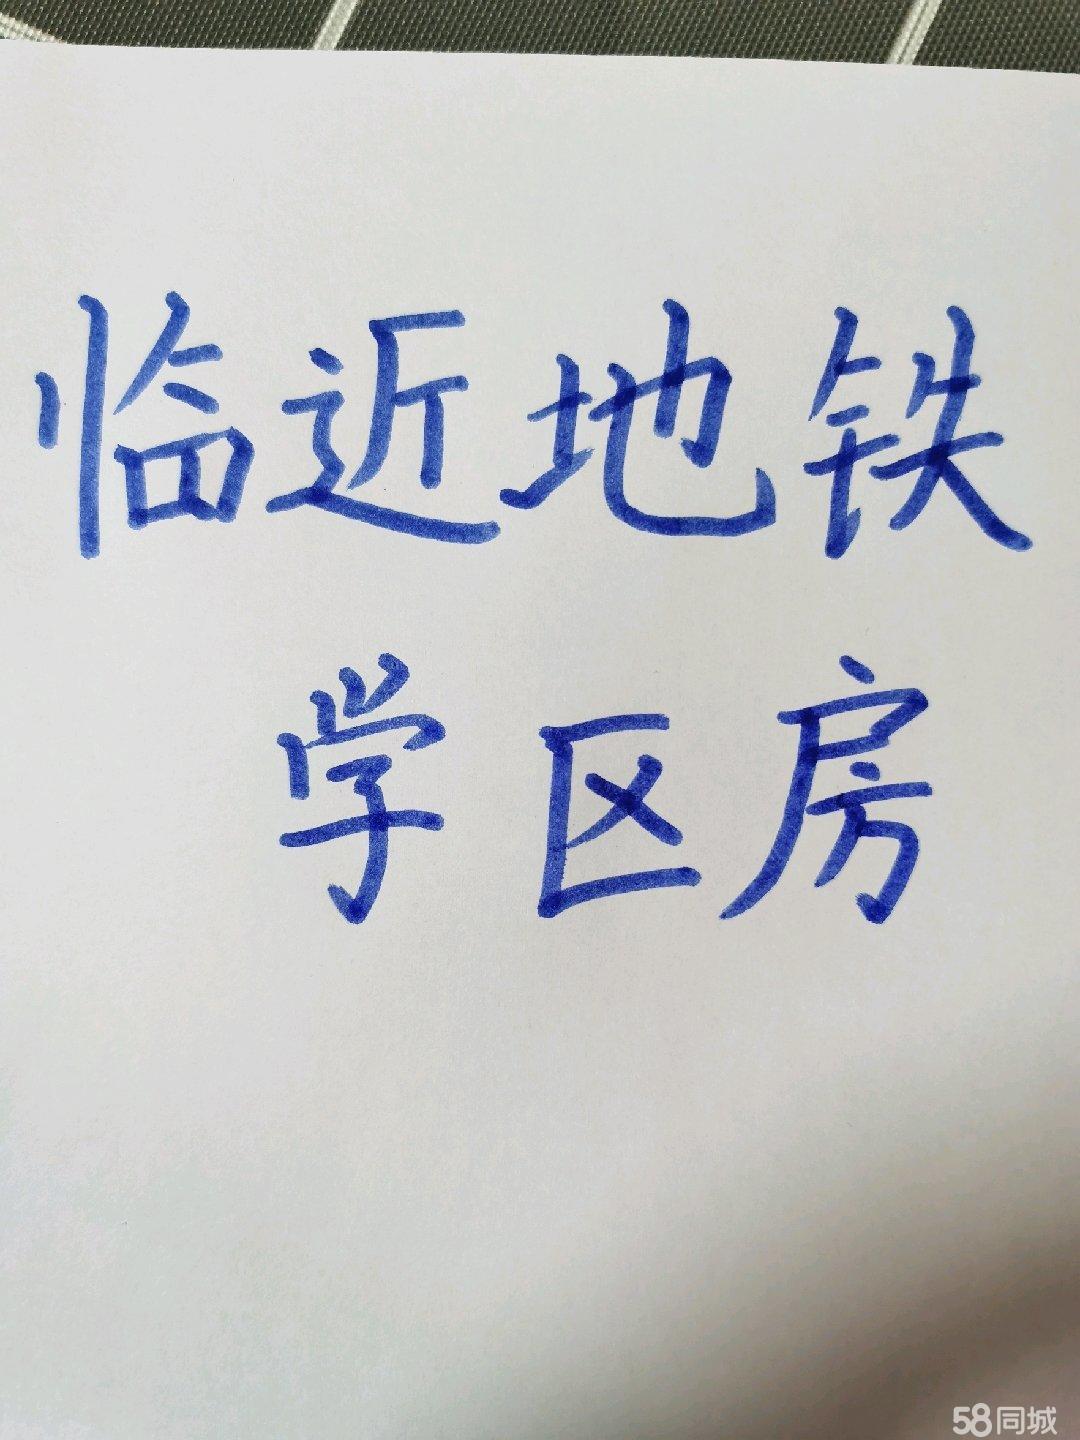 临近地铁
学区房
58同城